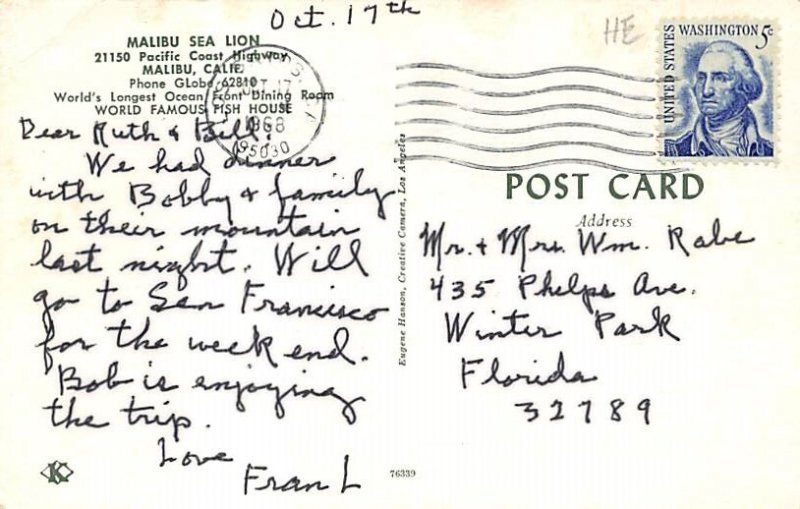 Oct. 17th
HE
MALIBU SEA LION
21150 Pacific Coast Highway
MALIBU, CALIF.
Phone GLobe 62810
World's Longest Ocean Front Dining Room
WORLD FAMOUS FISH HOUSE
Dear Ruth & Bill:
We had dinner
with Bobby & family
on their mountain
last night. Will
go to San Francisco
for the week end.
Bob is enjoying
the trip.
Love
Fran L
K
Eugene Hanson, Creative Camera, Los Angeles
76339
1968
95030
UNITED STATES
WASHINGTON 5c
POST CARD
Address
Mr. & Mrs. Wm. Rabe
435 Phelps Ave.
Winter Park
Florida
32789